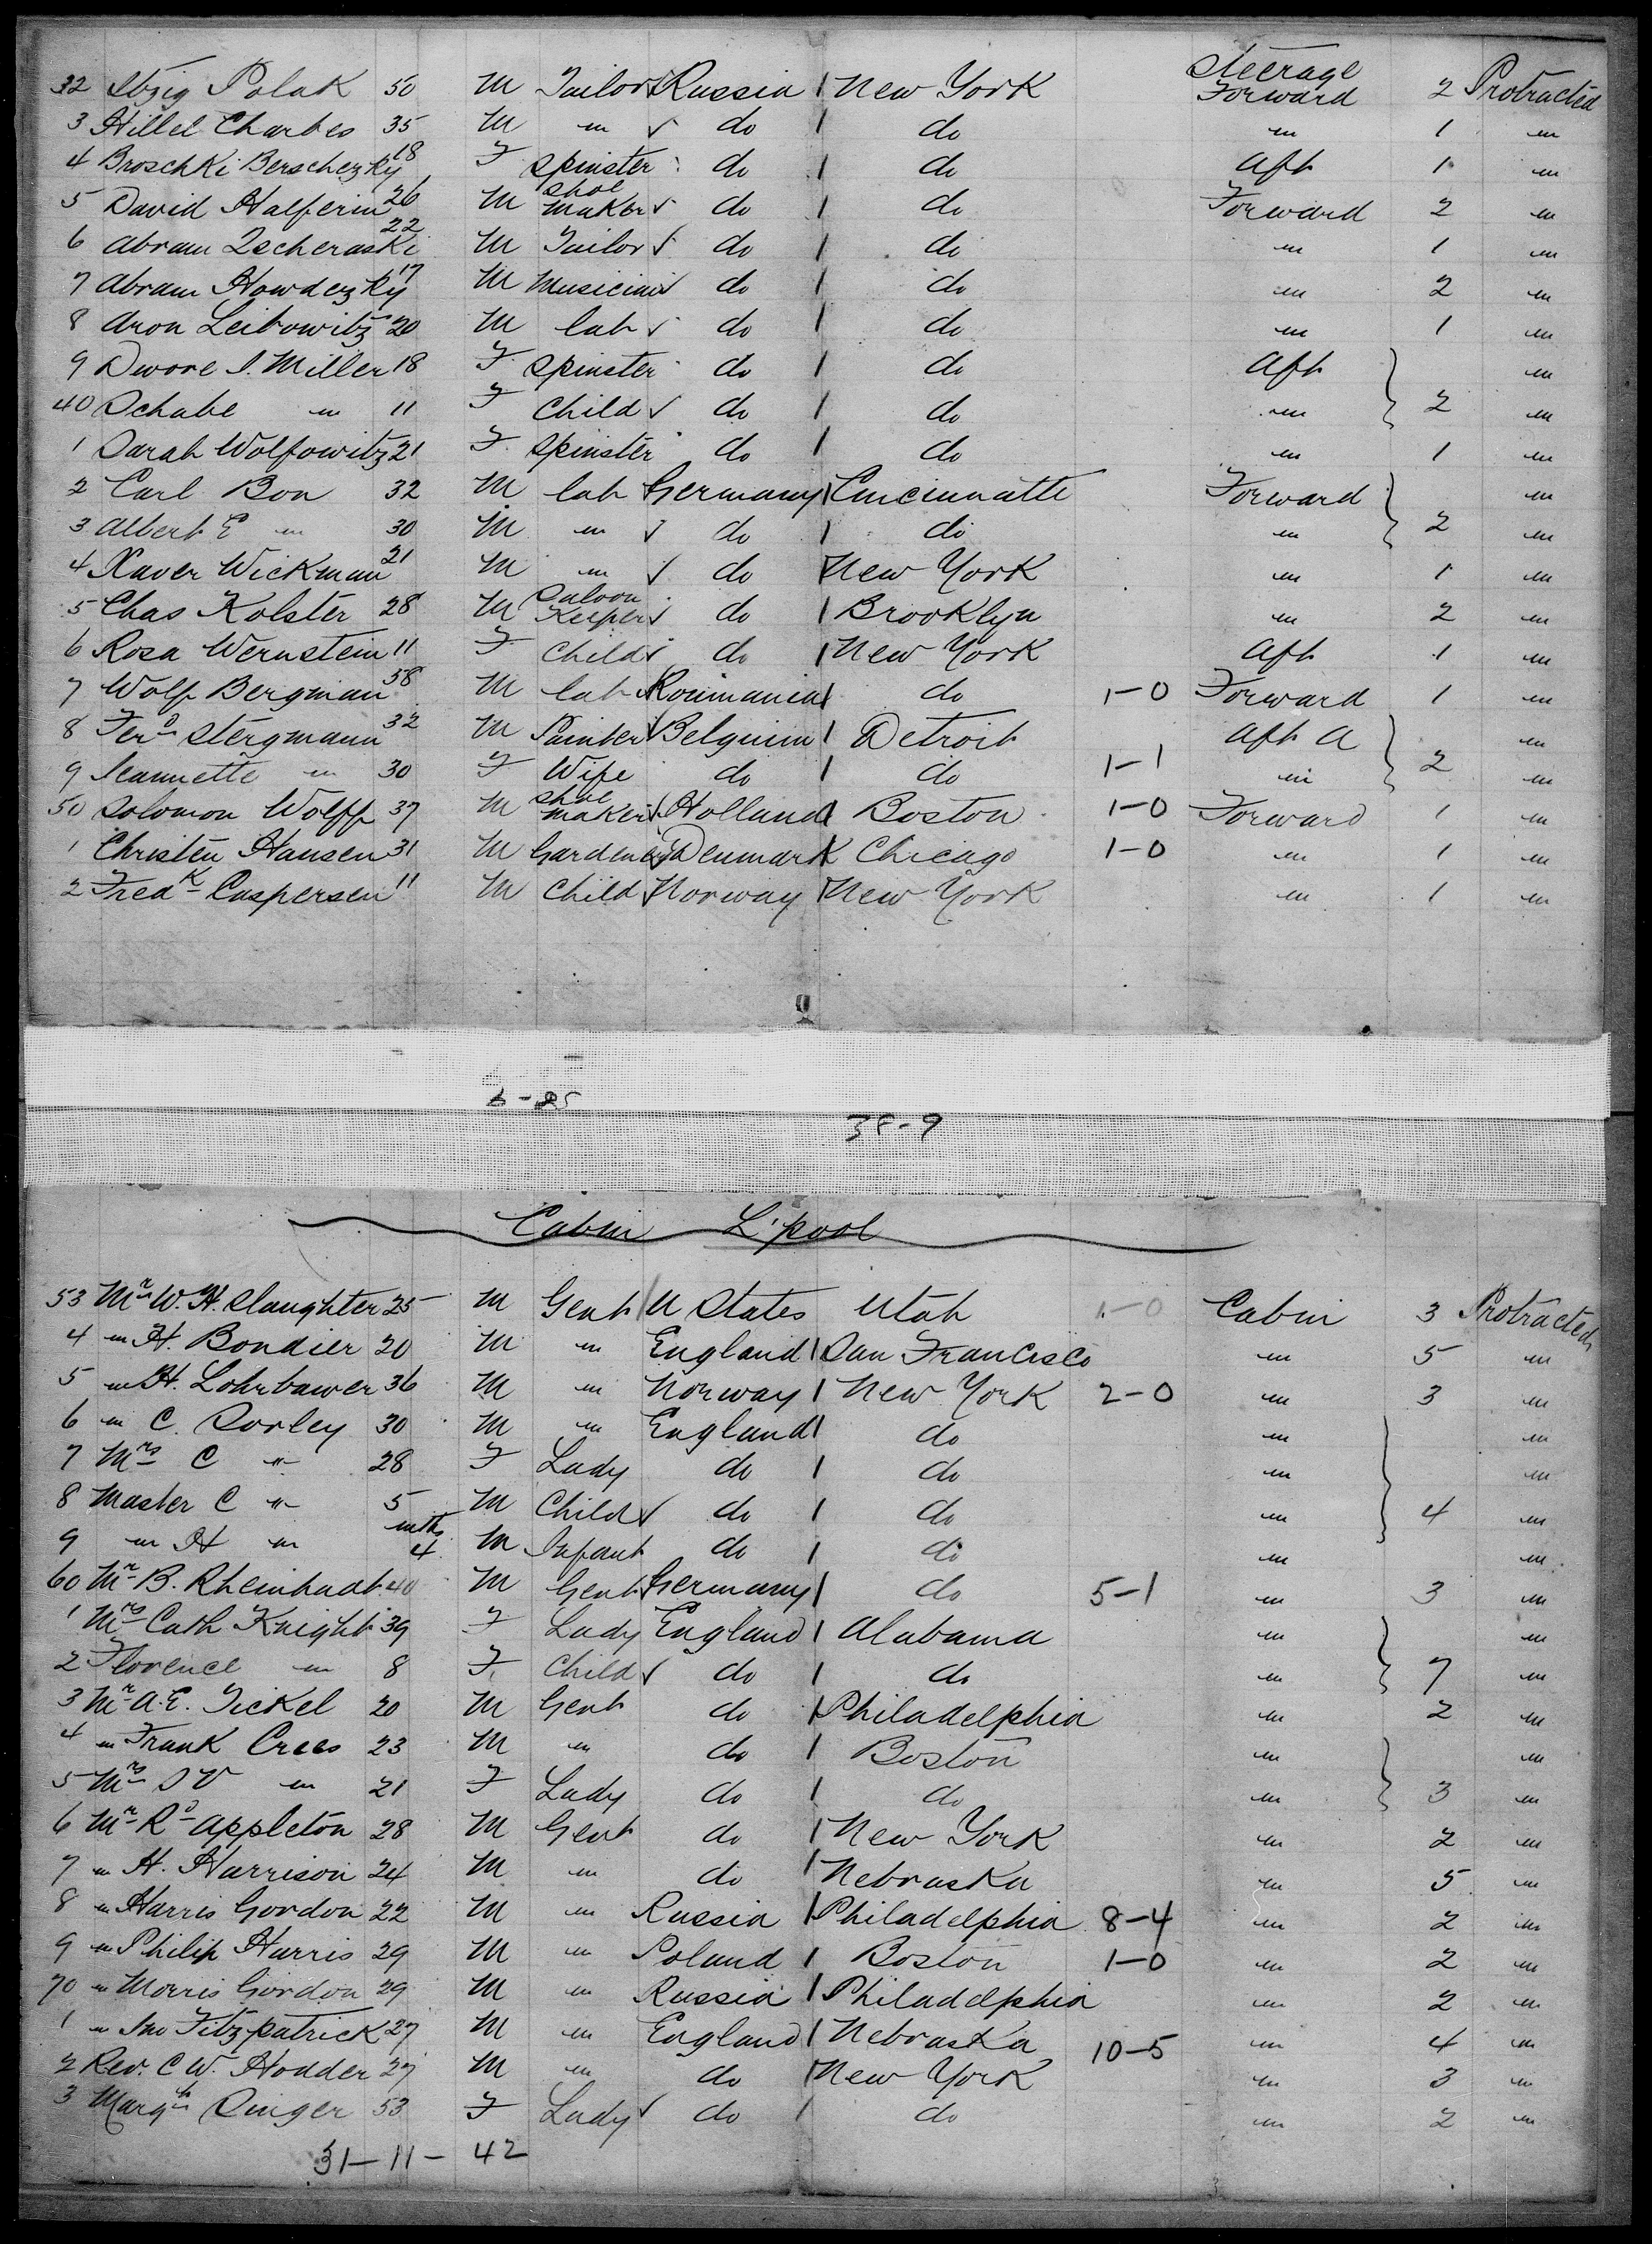 32 Itzig Polak 50 M Tailor Russia New York Steerage Forward 2 Protracted
3 Hillel Charbes 35 M " do do " 1 "
4 Broschki Berschezky 18 F Spinster do do Aft 1 "
5 David Halperin 26 M Shoe Maker do do Forward 2 "
6 Abram Zscheraski 22 M Tailor do do " 1 "
7 Abram Howdezky 17 M Musician do do " 2 "
8 Aron Leibowitz 20 M lab do do " 1 "
9 Dwore I. Miller 18 F Spinster do do Aft "
40 Schabe " 11 F Child do do " 2 "
1 Sarah Wolfowitz 21 F Spinster do do " 1 "
2 Carl Bon 32 M lab Germany Cincinnatte Forward "
3 Albert E " 30 M " do do " 2 "
4 Xaver Wickman 21 M " do New York " 1 "
5 Chas Kolster 28 M Saloon Keeper do Brooklyn " 2 "
6 Rosa Wernstein 11 F Child do New York Aft 1 "
7 Wolf Bergman 58 M lab Roumania do 1-0 Forward 1 "
8 Ferd Stergmann 32 M Painter Belguim Detroit Aft A "
9 Jeannette " 30 F Wife do do 1-1 " 2 "
50 Solomon Wolff 37 M Shoe maker Holland Boston 1-0 Forward 1 "
1 Christen Hansen 31 M Gardener Denmark Chicago 1-0 " 1 "
2 Fredk Caspersen 11 M Child Norway New York " 1 "
6-25
38-9
Cabin L'pool
53 Mr W. H. Slaughter 25 M Gent U States Utah 1-0 Cabin 3 Protracted
4 " H. Bondier 20 M " England San Francisco " 5 "
5 " H. Lohrbawer 36 M " Norway New York 2-0 " 3 "
6 " C. Sorley 30 M " England do " "
7 Mrs C " 28 F Lady do do " "
8 Master C " 5 M Child do do " 4 "
9 " H " mths 4 M Infant do do " "
60 Mr B. Rheinhadt 40 M Gent Germany do 5-1 " 3 "
1 Mrs Cath Knight 39 F Lady England Alabama " "
2 Florence " 8 F. Child do do " 7 "
3 Mr A. E. Tickel 20 M Gent do Philadelphia " 2 "
4 " Frank Crees 23 M " do Boston " "
5 Mrs S V " 21 F Lady do do " 3 "
6 Mr Rd Appleton 28 M Gent do New York " 2 "
7 " H. Harrison 24 M " do Nebraska " 5 "
8 " Harris Gordon 22 M " Russia Philadelphia 8-4 " 2 "
9 " Philip Harris 29 M " Poland Boston 1-0 " 2 "
70 " Morris Gordon 29 M " Russia Philadelphia " 2 "
1 " Jno Fitzpatrick 27 M " England Nebraska 10-5 " 4 "
2 Rev. C W. Hodder 27 M " do New York " 3 "
3 Margt Singer 53 F Lady do do " 2 "
31-11-42